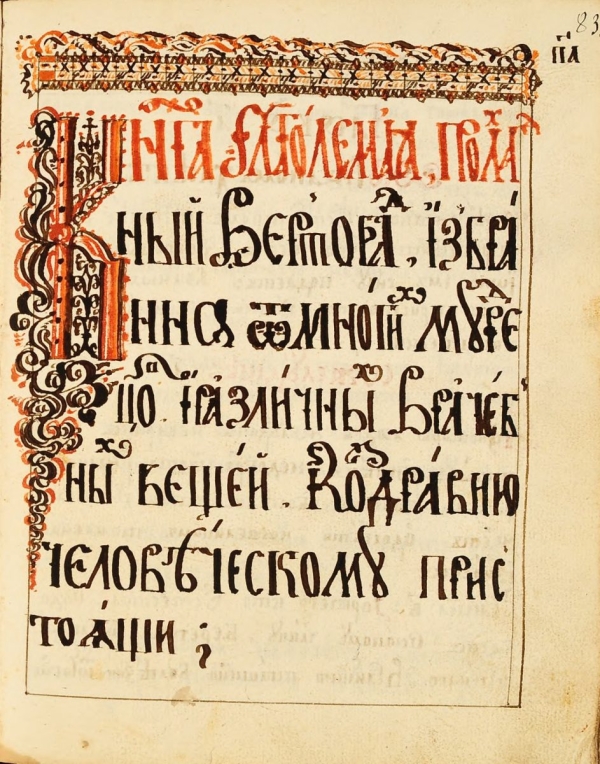 83
п҃а
Книга глаголемаѧ, Прохлаⷣ
ный вертограⷣ, избра
ннаѧ ѿ многиⷯ мꙋдре
цоⷡ ѡ различныⷯ врачеб
ныⷯ вещей. Ко здравию
человѣческомꙋ прис
тоѧщи ;